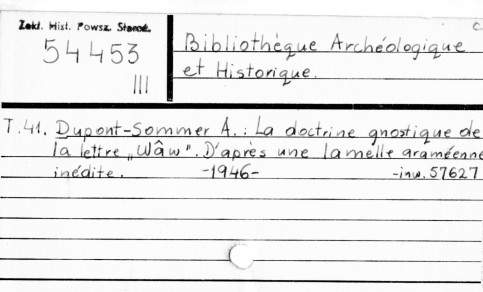 Zakł. Hist. Powsz. Staroż.
c.
54453
III
Bibliothéque Archéologique
et Historique.
T.41. Dupont-Sommer A.: La doctrine gnostique de
la lettre „Wâw". D'après une lamelle araméenne
inédite. -1946- -inw. 57627